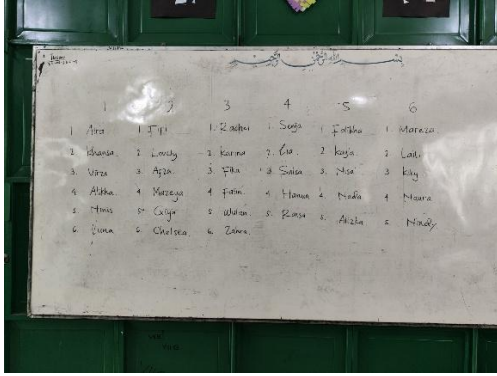 بسم الله الرحمن الرحيم
1 2 3 4 5 6
1 Aira 1. Fipi 1. Rachel 1. Senja 1 Fatikha 1. Marwza
2 Khansa 2. Lovely 2 Karina 2. Eia 2. Kayla 2. Laili
3. 3 Azza 3. Fika 3. Salsa 3. Nisa 3 Kiky
4 Atikha 4 Mazeya 4 Fatin 4 Hanun 4 Nada 4 Naura
5 5 5 Wulan 5. Raisa 5. Alizka 5 Nindy
6. Yuna 6. Chelsea 6 Zahra